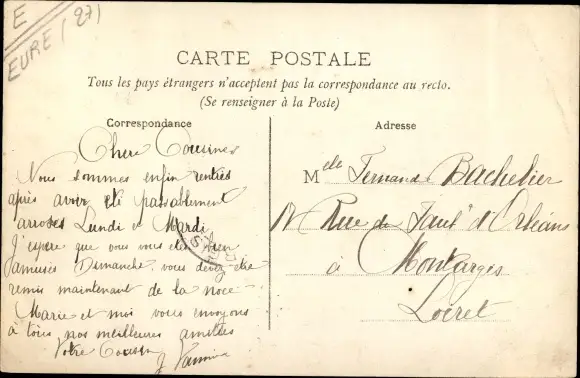 E
EURE (27)
CARTE POSTALE
Tous les pays étrangers n'acceptent pas la correspondance au recto.
(Se renseigner à la Poste)
Correspondance
Adresse
Chère Cousines
Nous sommes enfin rentrés
après avoir été passablement
arrosés Lundi et Mardi
J'espère que vous vous êtes bien
amusés Dimanche vous devez être
remis maintenant de la noce
Marie et moi vous envoyons
à tous nos meilleures amitiés
Votre Cousin
Melle Fernande Bachelier
Rue du Faub d'Orléans
à Montargis
Loiret